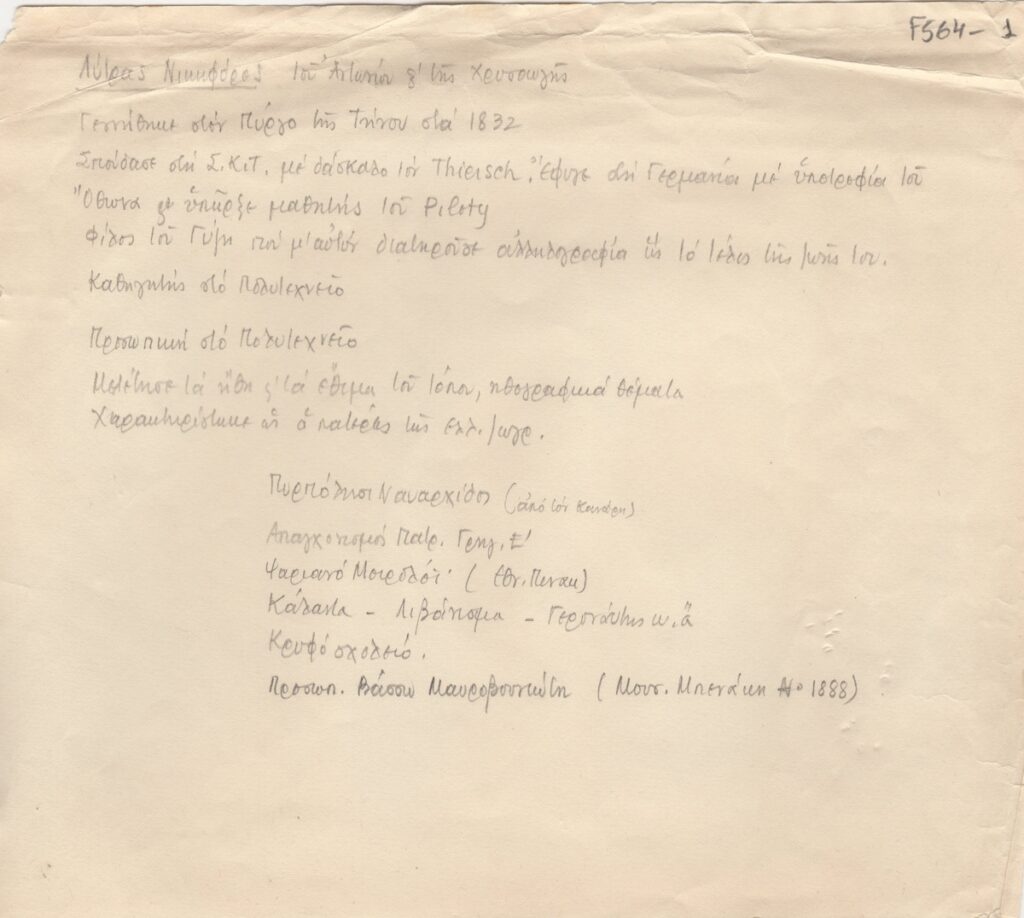 F564-1
Λύτρας Νικηφόρος τοῦ Ἀντωνίου & τῆς Χρυσαυγῆς
Γεννήθηκε στόν Πύργο τῆς Τήνου στά 1832
Σπούδασε στή Σ.Κ.Τ. μέ δάσκαλο τόν Thiersch. Ἔφυγε στή Γερμανία μέ ὑποτροφία τοῦ
Ὄθωνα & ὑπῆρξε μαθητής τοῦ Piloty
Φίλος τοῦ Γύζη πού μ' αὐτόν διατηροῦσε ἀλληλογραφία ὥς τό τέλος τῆς ζωῆς του.
Καθηγητής στό Πολυτεχνεῖο
Προσωπική στό Πολυτεχνεῖο
Μελέτησε τά ἤθη & τά ἔθιμα τοῦ τόπου, ηθογραφικά θέματα
Χαρακτηρίστηκε ὡς ὁ πατέρας τῆς ελλ. ζωγρ.
Πυρπόληση Ναυαρχίδος (ἀπό τόν Κανάρη)
Απαγχονισμός Πατρ. Γρηγ. Ε'
Ψαριανό Μοιρολόϊ (Εθν. Πινακ)
Κάλαντα - Λιβάνισμα - Γεροναύτης κ.ἄ
Κρυφό σχολειό.
Προσωπ. Βάσσω Μαυροβουνιώτη (Μουσ. Μπενάκη Νο 1888)